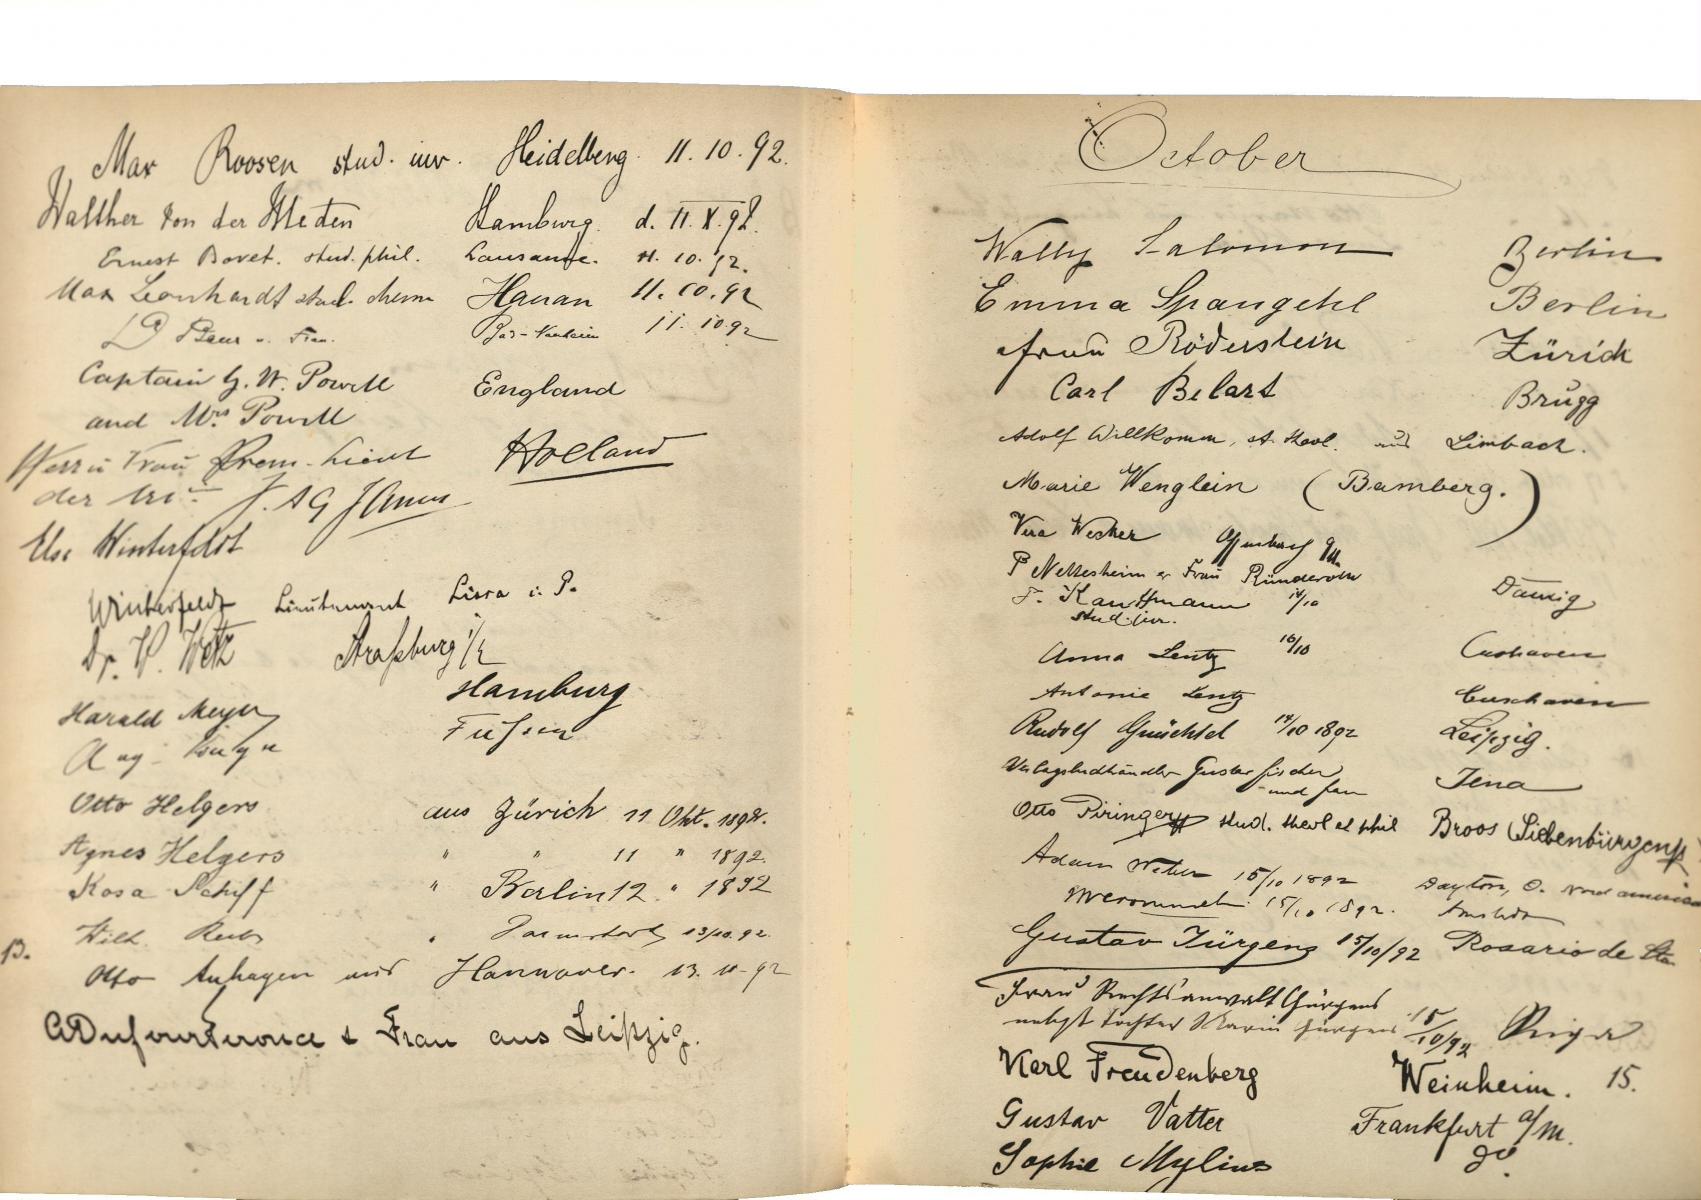 Max Roosen stud. iur. Heidelberg 11.10.92.
Walther von der Meden Hamburg. d. 11.X.92.
Ernest Bovet. stud. phil. Lausanne. 11.10.92.
Max Leonhardt stud. chem Hanau 11.10.92
Dr u. Frau. Bad-Nauheim 11.10.92
Captain G. W. Powell England
and Mrs. Powell
Herr u Frau Prem-Lieut Holland
der J. A G
Else Winterfeldt
Winterfeldt Lieutenant Lissa i. P.
Dr. W. Wetz Straßburg i/E
Harald Meyer Hamburg
Aug. Füssen
Otto Helgers aus Zürich 11 Okt. 1892.
Agnes Helgers " " 11 " 1892.
Rosa Schiff " Berlin 12 " 1892
Wilh. Darmstadt 13/10.92.
13.
Otto Anhagen aus Hannover. 13.10-92
& Frau aus Leipzig.
October
Wally Salomon Berlin
Emma Spangehl Berlin
Frau Röderstein Zürich
Carl Belart Brugg
Adolf Willkomm, st. theol. aus Limbach.
Marie Wenglein (Bamberg.)
Vera Wecker Offenbach
P Nettesheim & Frau Ründeroth
F. Kauffmann 14/10 Danzig
stud. jur.
Anna Lentz 16/10 Cuxhaven
Antonie Lentz Cuxhaven
Rudolf Gmüchtel 14/10 1892 Leipzig.
Verlagsbuchhändler Gustav Fischer Jena
und Frau
Otto Piringer stud. theol et phil Broos (Siebenbürgen)
Adam Weber 15/10 1892 Dayton, O. Nord america
15/10 1892. Arnstadt
Gustav Jürgens 15/10/92 Rosario de Sta
Frau Rechtsanwalt Jürgens
nebst Tochter Marie Jürgens 15/10/92 Riga
Karl Freudenberg Weinheim. 15.
Gustav Vatter Frankfurt a/M.
Sophie Mylius do.